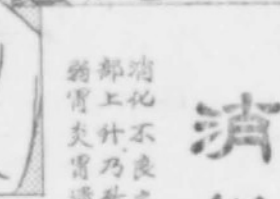 消
消化不良
部上升乃至
弱胃炎胃潰